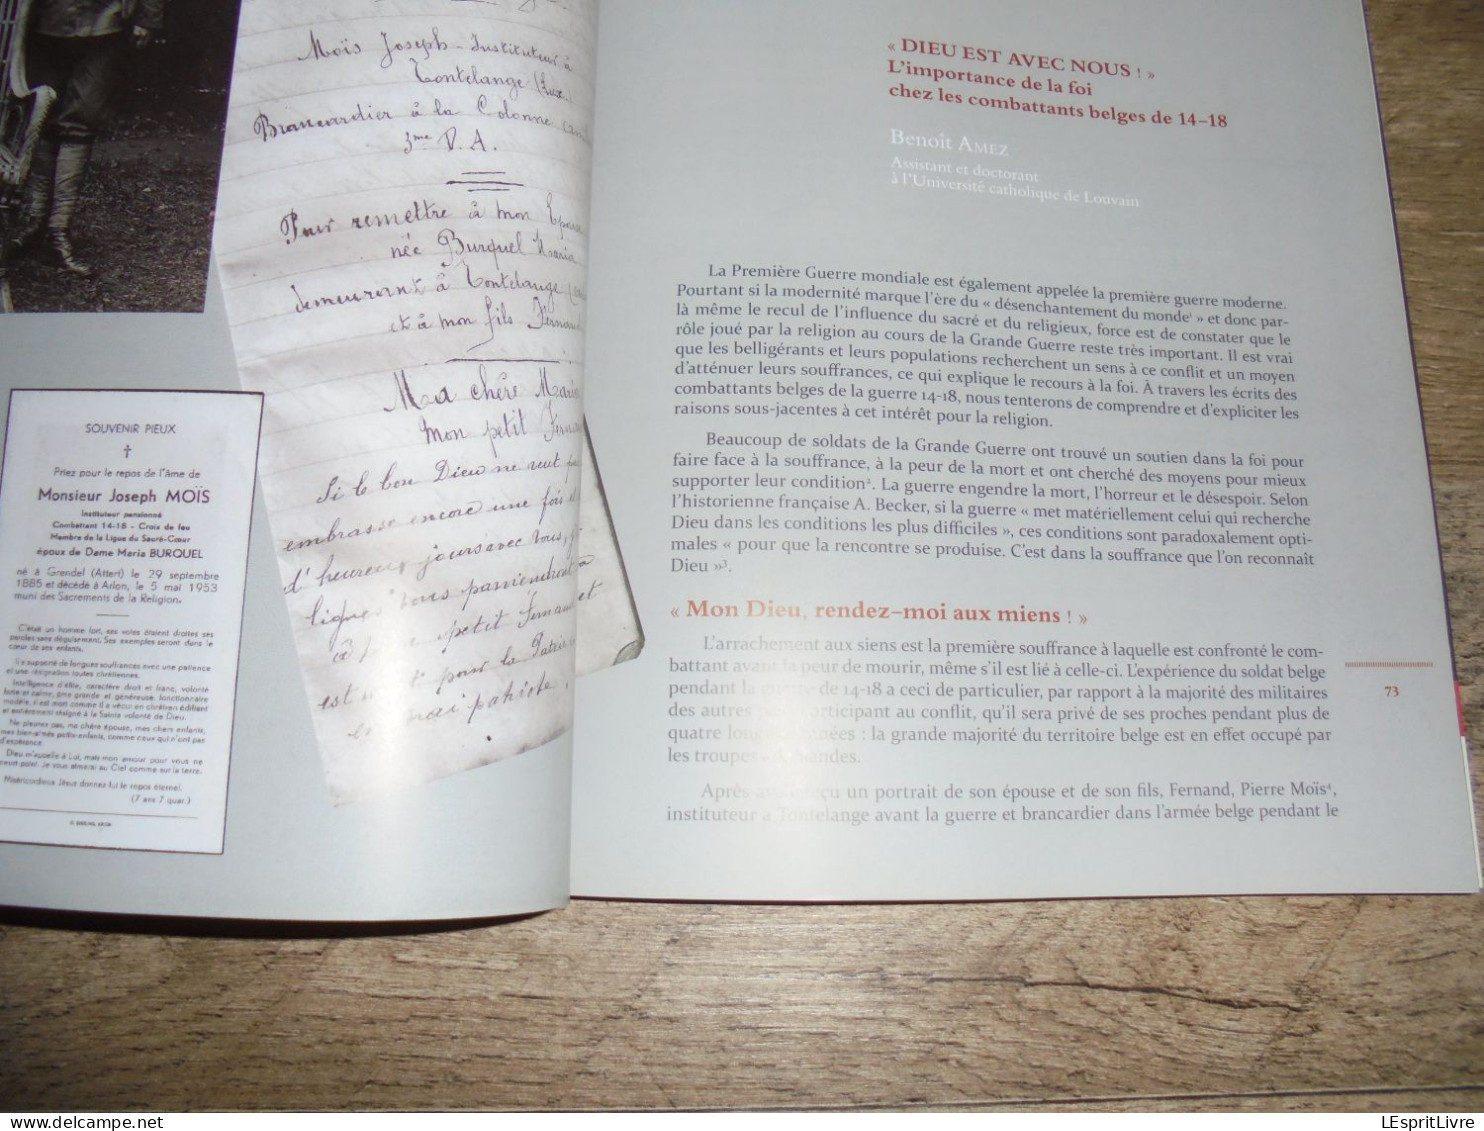 Moïs Joseph - Instituteur à
Tontelange (Lux.
Brancardier à la Colonne
3me D.A.
Pour remettre à mon Epouse
née Burquel Maria
demeurant à Tontelange
et à mon fils Fernand
Ma chère Maria
Mon petit Fernand
Si le bon Dieu ne veut pas
embrasse encore une fois
d'heureux jours avec vous,
lignes vous parviendront à
petit Fernand et
est mort pour la Patrie
vrai patriote.
SOUVENIR PIEUX
†
Priez pour le repos de l'âme de
Monsieur Joseph MOÏS
Instituteur pensionné
Combattant 14-18 - Croix de feu
Membre de la Ligue du Sacré-Cœur
époux de Dame Maria BURQUEL
né à Grendel (Attert) le 29 septembre
1885 et décédé à Arlon, le 5 mai 1953
muni des Sacrements de la Religion.
C'était un homme fort, ses voies étaient droites ses
paroles sans déguisement. Ses exemples seront dans le
cœur de ses enfants.
Il a supporté de longues souffrances avec une patience
et une résignation toutes chrétiennes.
Intelligence d'élite, caractère droit et franc, volonté
forte et calme, âme grande et généreuse, fonctionnaire
modèle, il est mort comme il a vécu en chrétien édifiant
et entièrement résigné à la Sainte volonté de Dieu.
Ne pleurez pas, ma chère épouse, mes chers enfants,
mes bien-aimés petits-enfants, comme ceux qui n'ont pas
d'espérance.
Dieu m'appelle à Lui, mais mon amour pour vous ne
meurt point. Je vous aimerai au Ciel comme sur la terre.
Miséricordieux Jésus donnez lui le repos éternel.
(7 ans 7 quar.)
« DIEU EST AVEC NOUS ! »
L'importance de la foi
chez les combattants belges de 14–18
Benoît AMEZ
Assistant et doctorant
à l'Université catholique de Louvain
La Première Guerre mondiale est également appelée la première guerre moderne.
Pourtant si la modernité marque l'ère du « désenchantement du monde¹ » et donc par-
là même le recul de l'influence du sacré et du religieux, force est de constater que le
rôle joué par la religion au cours de la Grande Guerre reste très important. Il est vrai
que les belligérants et leurs populations recherchent un sens à ce conflit et un moyen
d'atténuer leurs souffrances, ce qui explique le recours à la foi. À travers les écrits des
combattants belges de la guerre 14-18, nous tenterons de comprendre et d'expliciter les
raisons sous-jacentes à cet intérêt pour la religion.
Beaucoup de soldats de la Grande Guerre ont trouvé un soutien dans la foi pour
faire face à la souffrance, à la peur de la mort et ont cherché des moyens pour mieux
supporter leur condition². La guerre engendre la mort, l'horreur et le désespoir. Selon
l'historienne française A. Becker, si la guerre « met matériellement celui qui recherche
Dieu dans les conditions les plus difficiles », ces conditions sont paradoxalement opti-
males « pour que la rencontre se produise. C'est dans la souffrance que l'on reconnaît
Dieu »³.
« Mon Dieu, rendez-moi aux miens ! »
L'arrachement aux siens est la première souffrance à laquelle est confronté le com-
battant avant la peur de mourir, même s'il est lié à celle-ci. L'expérience du soldat belge
pendant la guerre de 14-18 a ceci de particulier, par rapport à la majorité des militaires
des autres participant au conflit, qu'il sera privé de ses proches pendant plus de
quatre longues années : la grande majorité du territoire belge est en effet occupé par
les troupes allemandes.
Après avoir reçu un portrait de son épouse et de son fils, Fernand, Pierre Moïs⁴,
instituteur à Tontelange avant la guerre et brancardier dans l'armée belge pendant le
73
LEspritLivre
www.delcampe.net